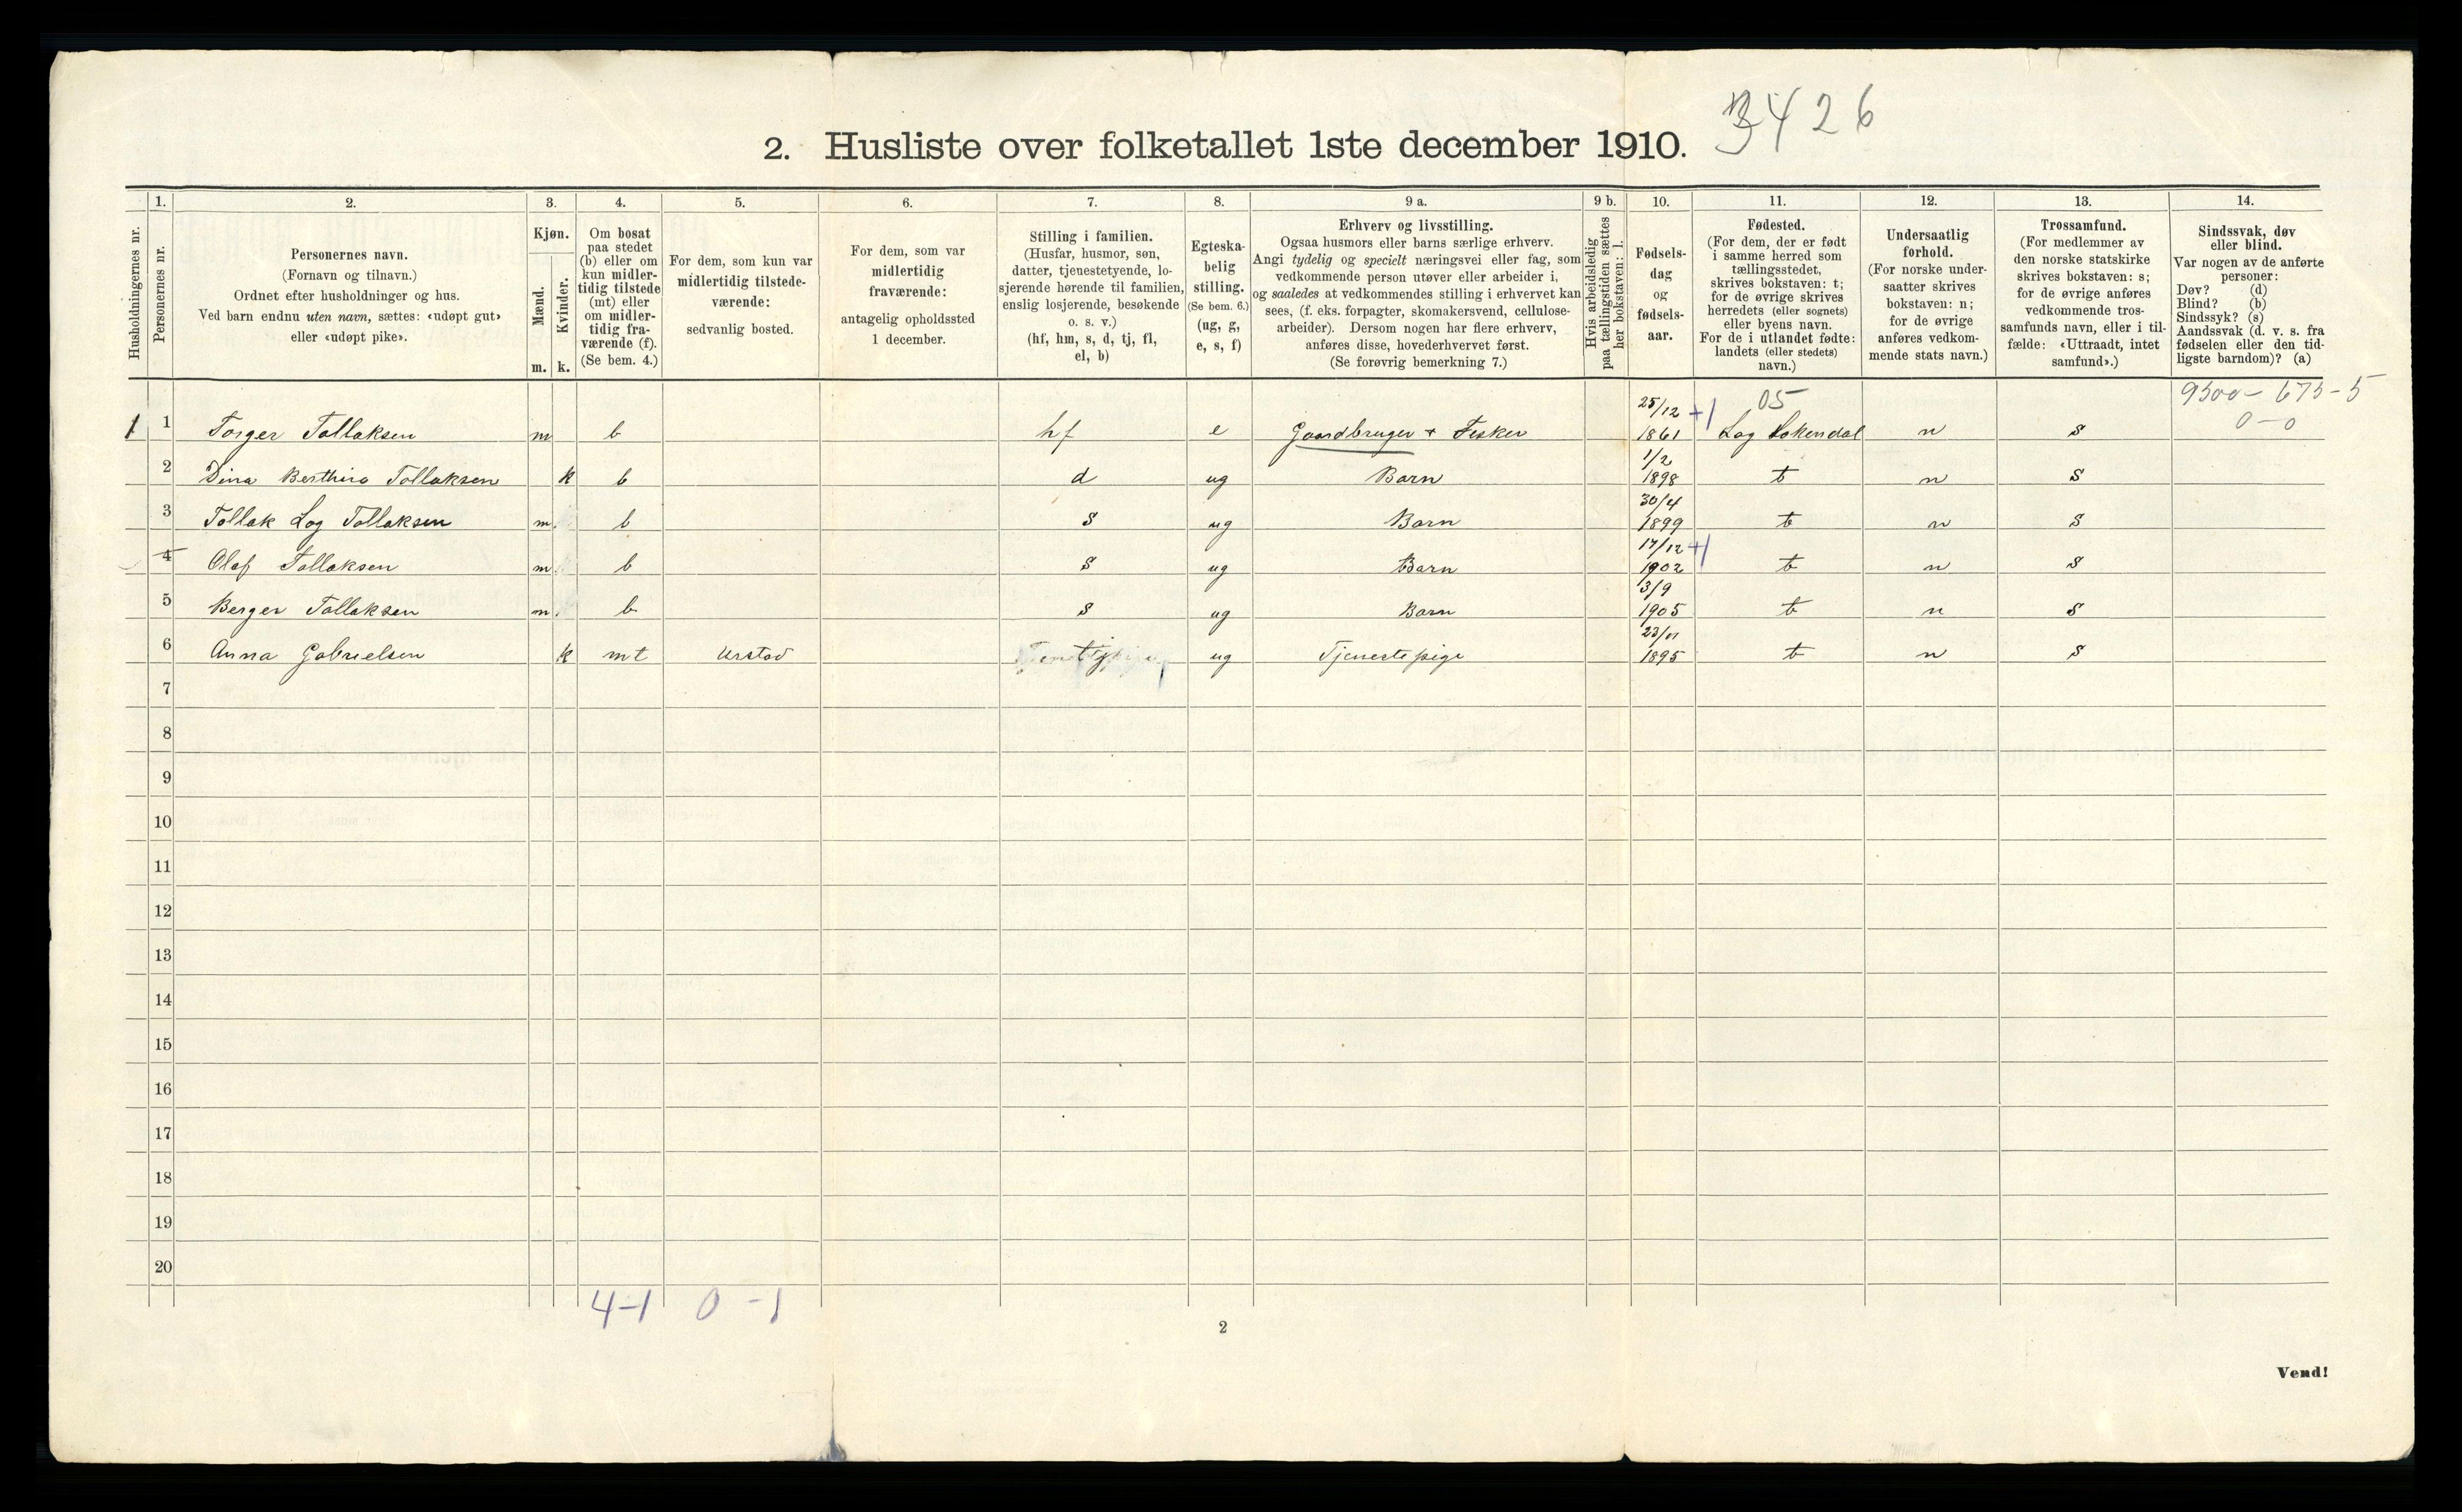 3426
2. Husliste over folketallet 1ste december 1910.
Husholdningernes nr.
1.
Personernes nr.
2.
Personernes navn.
(Fornavn og tilnavn.)
Ordnet efter husholdninger og hus.
Ved barn endnu uten navn, sættes: «udøpt gut»
eller «udøpt pike».
3.
Kjøn.
Mænd.
Kvinder.
m. k.
4.
Om bosat
paa stedet
(b) eller om
kun midler-
tidig tilstede
(mt) eller
om midler-
tidig fra-
værende (f).
(Se bem. 4.)
5.
For dem, som kun var
midlertidig tilstede-
værende:
sedvanlig bosted.
6.
For dem, som var
midlertidig
fraværende:
antagelig opholdssted
1 december.
7.
Stilling i familien.
(Husfar, husmor, søn,
datter, tjenestetyende, lo-
sjerende hørende til familien,
enslig losjerende, besøkende
o. s. v.)
(hf, hm, s, d, tj, fl,
el, b)
8.
Egteska-
belig
stilling.
(Se bem. 6.)
(ug, g,
e, s, f)
9 a.
Erhverv og livsstilling.
Ogsaa husmors eller barns særlige erhverv.
Angi tydelig og specielt næringsvei eller fag, som
vedkommende person utøver eller arbeider i,
og saaledes at vedkommendes stilling i erhvervet kan
sees, (f. eks. forpagter, skomakersvend, cellulose-
arbeider). Dersom nogen har flere erhverv,
anføres disse, hovederhvervet først.
(Se forøvrig bemerkning 7.)
9 b.
Hvis arbeidsledig
paa tællingstiden sættes
her bokstaven: l.
10.
Fødsels-
dag
og
fødsels-
aar.
11.
Fødested.
(For dem, der er født
i samme herred som
tællingsstedet,
skrives bokstaven: t;
for de øvrige skrives
herredets (eller sognets)
eller byens navn.
For de i utlandet fødte:
landets (eller stedets)
navn.)
12.
Undersaatlig
forhold.
(For norske under-
saatter skrives
bokstaven: n;
for de øvrige
anføres vedkom-
mende stats navn.)
13.
Trossamfund.
(For medlemmer av
den norske statskirke
skrives bokstaven: s;
for de øvrige anføres
vedkommende tros-
samfunds navn, eller i til-
fælde: «Uttraadt, intet
samfund».)
14.
Sindssvak, døv
eller blind.
Var nogen av de anførte
personer:
Døv? (d)
Blind? (b)
Sindssyk? (s)
Aandssvak (d. v. s. fra
fødselen eller den tid-
ligste barndom)? (a)
05 9500 - 675 - 5
0 - 0
1 1 Torger Tollaksen m b hf e Gaardbruger + Fisker 25/12 1861 +1 Log Sokendal n s
2 Dina Berthine Tollaksen k b d ug Barn 1/2 1898 t n s
3 Tollak Log Tollaksen m b s ug Barn 30/4 1899 t n s
4 Olaf Tollaksen m b s ug Barn 17/12 1902 +1 t n s
5 Berger Tollaksen m b s ug Barn 3/9 1905 t n s
6 Anna Gabrielsen k mt Urstad tj ug Tjenestepige 23/11 1895 t n s
7
8
9
10
11
12
13
14
15
16
17
18
19
20
4-1 0-1
2
Vend!